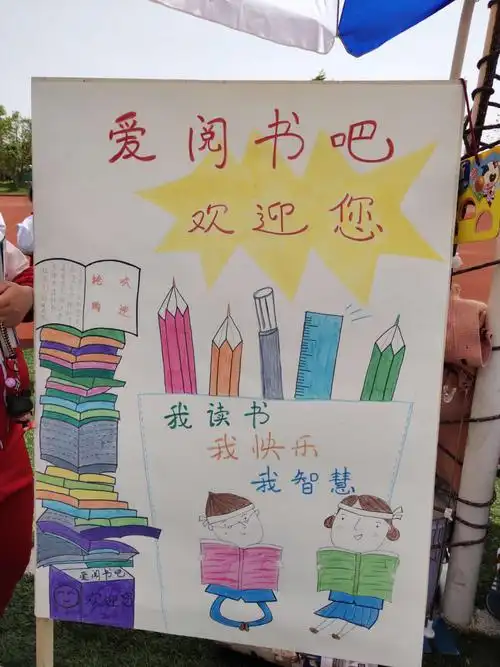 爱阅书吧
欢迎您
欢迎
抢购
我读书
我快乐
我智慧
爱阅书吧
欢迎您